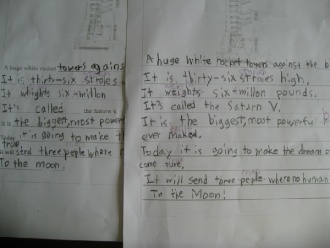 A huge white rocket towers agains
It is thirty-six stroies
It wheights six-millon
It's called the Saturn V
is the biggest, most power
Today it is going to make th
true.
send three people where n
To the moon.
A huge white rocket towers against the b
It is thirty-six stroies high.
It weights six-millon pounds.
It's called the Saturn V.
It is the biggest, most powerful
ever maked.
Today it is going to make the dream o
come ture.
It will send three people where no human
To the Moon!